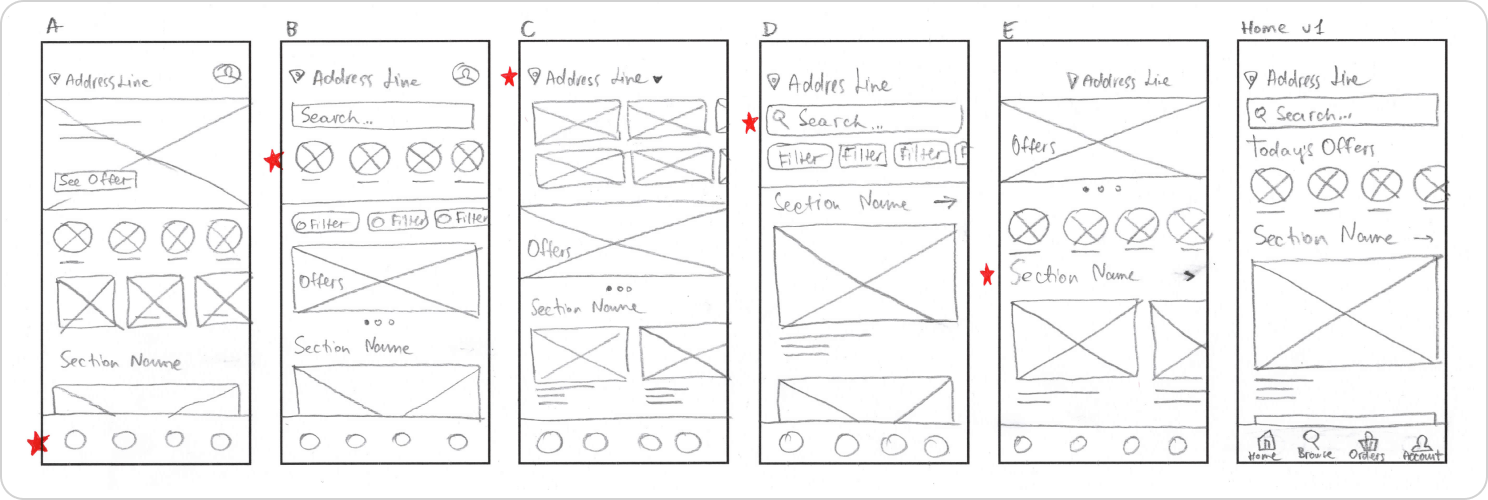 A
Address Line
See Offer
Section Name
B
Address Line
Search...
Filter Filter Filter
Offers
Section Name
C
Address Line
Offers
Section Name
D
Addres Line
Search...
Filter Filter Filter F
Section Name
E
Address Lie
Offers
Section Name
Home v1
Address Line
Search...
Today's Offers
Section Name
Home Browse Orders Account